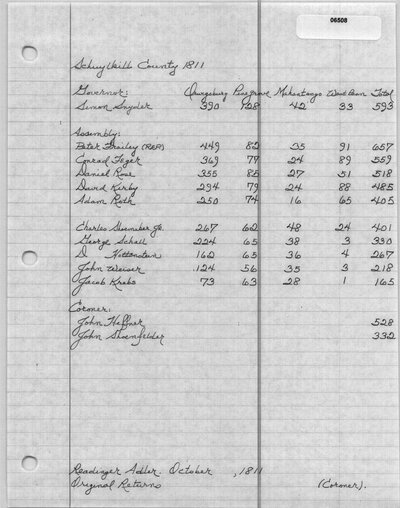 06508
Schuylkill County 1811
Governor: Orwigsburg Pinegrove Mahantango West Penn Total
Simon Snyder 390 128 42 33 593
Assembly:
Peter Frailey (REP) 449 82 35 91 657
Conrad Feger 369 77 24 89 559
Daniel Rose 355 85 27 51 518
David Kirby 294 79 24 88 485
Adam Roth 250 74 16 65 405
Charles Shoemaker Jr. 267 62 48 24 401
George Schall 224 65 38 3 330
D. Hottenstein 162 65 36 4 267
John Weiser 124 56 35 3 218
Jacob Krebs 73 63 28 1 165
Coroner:
John Heffner 528
John Shoenfelder 332
Readinger Adler. October , 1811
Original Returns (Coroner).